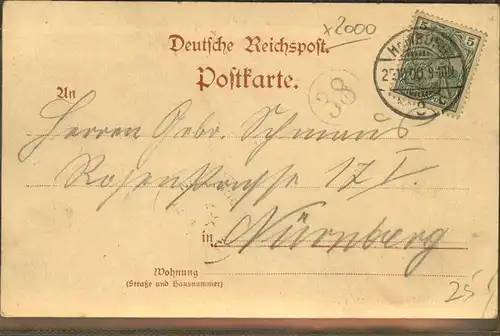 x 2000
5 5
Deutsche Reichspost.
Postkarte.
HAMBURG
38
An
Herren Gebr. Schmaus
Rosenstrasse 17 I.
in Nürnberg
Wohnung
(Straße und Hausnummer)
25